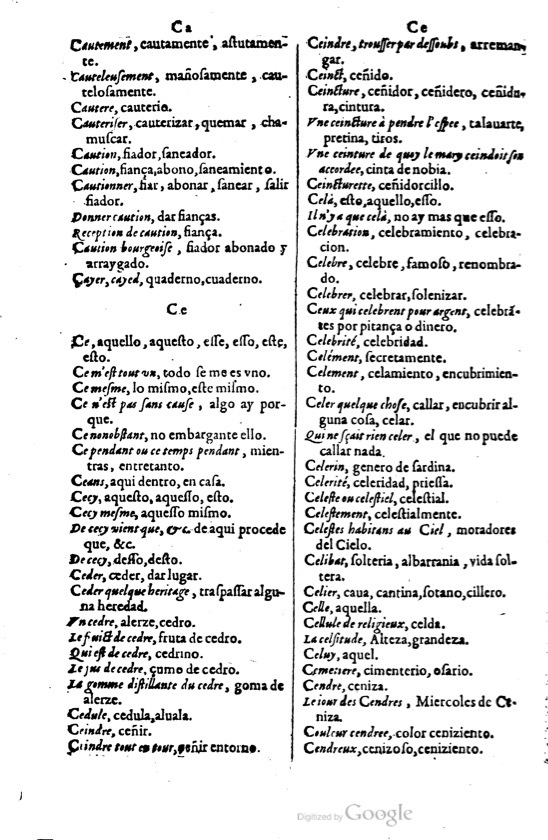 Ca
Cautement, cautamente, aſtutamen-
te.
Cauteleuſement, mañoſamente, cau-
teloſamente.
Cautere, cauterio.
Cauteriſer, cauterizar, quemar, cha-
muſcar.
Caution, fiador, ſaneador.
Caution, fiança, abono, ſaneamiento.
Cautionner, fiar, abonar, ſanear, ſalir
fiador.
Donner caution, dar fianças.
Reception de caution, fiança.
Caution bourgeoiſe, fiador abonado y
arraygado.
Cayer, cayed, quaderno, cuaderno.
Ce
Ce, aquello, aqueſto, eſſe, eſſo, eſte,
eſto.
Ce m'eſt tout vn, todo ſe me es vno.
Ce meſme, lo miſmo, eſte miſmo.
Ce n'eſt pas ſans cauſe, algo ay por-
que.
Ce nonobſtant, no embargante ello.
Ce pendant ou ce temps pendant, mien-
tras, entretanto.
Ceans, aqui dentro, en caſa.
Cecy, aqueſto, aqueſſo, eſto.
Cecy meſme, aqueſſo miſmo.
De cecy vient que, &c. de aqui procede
que, &c.
De cecy, deſſo, deſto.
Ceder, ceder, dar lugar.
Ceder quelque heritage, traſpaſſar algu-
na heredad.
Vn cedre, alerze, cedro.
Le fruict de cedre, fruta de cedro.
Qui eſt de cedre, cedrino.
Le jus de cedre, çumo de cedro.
La gomme diſtillante du cedre, goma de
alerze.
Cedule, cedula, aluala.
Ceindre, ceñir.
Ceindre tout en tour, ceñir entorno.
Ce
Ceindre, trouſſer par deſſoubs, arreman-
gar.
Ceinct, ceñido.
Ceincture, ceñidor, ceñidero, ceñidu-
ra, cintura.
Vne ceincture à pendre l'eſpee, talauarte,
pretina, tiros.
Vne ceinture de quoy le mary ceindoit ſon
accordee, cinta de nobia.
Ceincturette, ceñidorcillo.
Celà, eſto, aquello, eſſo.
Il n'y a que celà, no ay mas que eſſo.
Celebration, celebramiento, celebra-
cion.
Celebre, celebre, famoſo, renombra-
do.
Celebrer, celebrar, ſolenizar.
Ceux qui celebrent pour argent, celebrã-
tes por pitança o dinero.
Celebrité, celebridad.
Celément, ſecretamente.
Celement, celamiento, encubrimien-
to.
Celer quelque choſe, callar, encubrir al-
guna coſa, celar.
Qui ne ſçait rien celer, el que no puede
callar nada.
Celerin, genero de ſardina.
Celerité, celeridad, prieſſa.
Celeſte ou celeſtiel, celeſtial.
Celeſtement, celeſtialmente.
Celeſtes habitans au Ciel, moradores
del Cielo.
Celibat, ſolteria, albarrania, vida ſol-
tera.
Celier, caua, cantina, ſotano, cillero.
Celle, aquella.
Cellule de religieux, celda.
La celſitude, Alteza, grandeza.
Celuy, aquel.
Cemetiere, cimenterio, oſario.
Cendre, ceniza.
Le iour des Cendres, Miercoles de Ce-
niza.
Couleur cendree, color ceniziento.
Cendreux, cenizoſo, ceniziento.
Digitized by Google